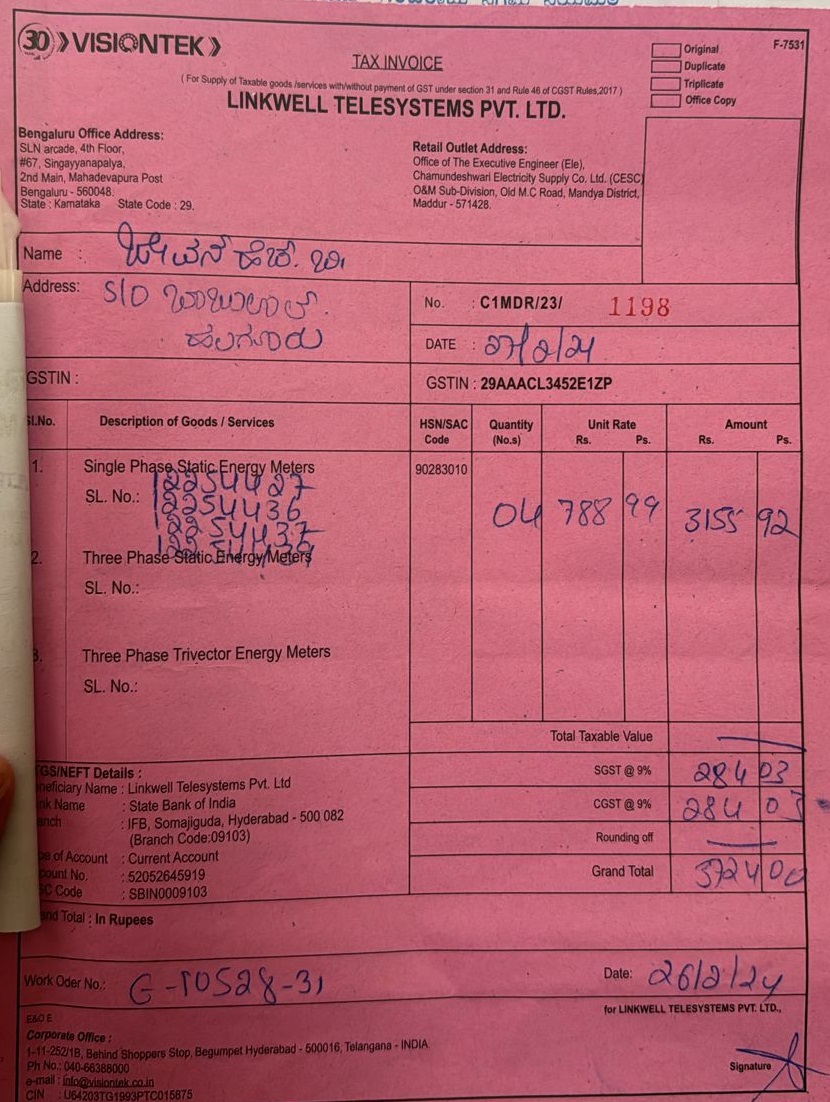 30 VISIONTEK
TAX INVOICE
( For Supply of Taxable goods /services with/without payment of GST under section 31 and Rule 46 of CGST Rules,2017 )
LINKWELL TELESYSTEMS PVT. LTD.
Original
Duplicate
Triplicate
Office Copy
F-7531
Bengaluru Office Address:
SLN arcade, 4th Floor,
#67, Singayyanapalya,
2nd Main, Mahadevapura Post
Bengaluru - 560048.
State : Karnataka State Code : 29.
Retail Outlet Address:
Office of The Executive Engineer (Ele),
Chamundeshwari Electricity Supply Co. Ltd. (CESC)
O&M Sub-Division, Old M.C Road, Mandya District,
Maddur - 571428.
Name :
Address: S/O ಬಾಬುಲಾಲ್
ಹಲಗೂರು
No. : C1MDR/23/ 1198
DATE : 27/2/24
GSTIN :
GSTIN : 29AAACL3452E1ZP
Sl.No. Description of Goods / Services HSN/SAC Code Quantity (No.s) Unit Rate Rs. Ps. Amount Rs. Ps.
1. Single Phase Static Energy Meters 90283010
SL. No.: 12254427
12254436 04 788 99 3155 92
12254437
2. Three Phase Static Energy Meters
SL. No.:
3. Three Phase Trivector Energy Meters
SL. No.:
Total Taxable Value
SGST @ 9% 284 03
CGST @ 9% 284 03
Rounding off
Grand Total 3724 00
TGS/NEFT Details :
neficiary Name : Linkwell Telesystems Pvt. Ltd
nk Name : State Bank of India
anch : IFB, Somajiguda, Hyderabad - 500 082
(Branch Code:09103)
pe of Account : Current Account
count No. : 52052645919
SC Code : SBIN0009103
and Total : In Rupees
Work Oder No.: G-10528-31
Date: 26/2/24
for LINKWELL TELESYSTEMS PVT. LTD.,
E&O E
Corporate Office :
1-11-252/1B, Behind Shoppers Stop, Begumpet Hyderabad - 500016, Telangana - INDIA
Ph No.: 040-66388000
e-mail : info@visiontek.co.in
CIN : U64203TG1993PTC015875
Signature